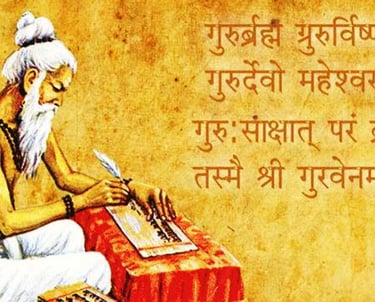 गुरुर्ब्रह्म ग्रुरुर्विष्ण
गुरुर्देवो महेश्वर
गुरु:साक्षात् परं
तस्मै श्री गुरवेनम